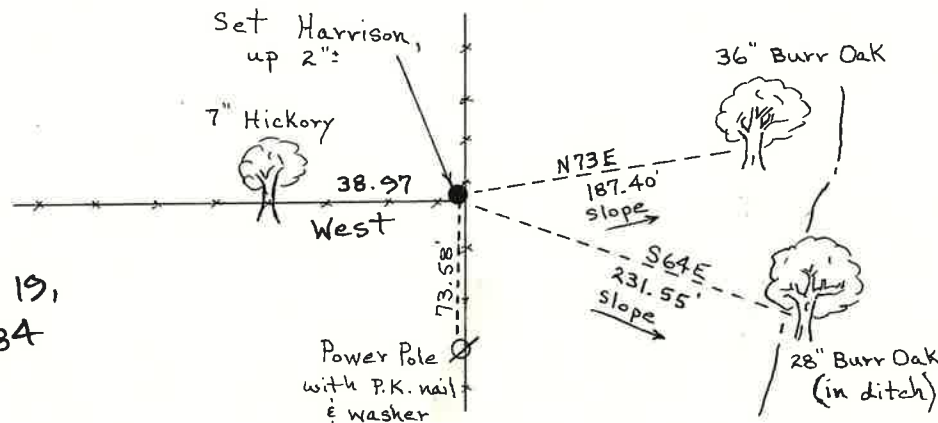 Set Harrison,
up 2"±
36" Burr Oak
7" Hickory
N73E
187.40'
slope
38.97
West
S64E
231.55'
slope
73.58'
19,
34
Power Pole
with P.K. nail
& washer
28" Burr Oak
(in ditch)